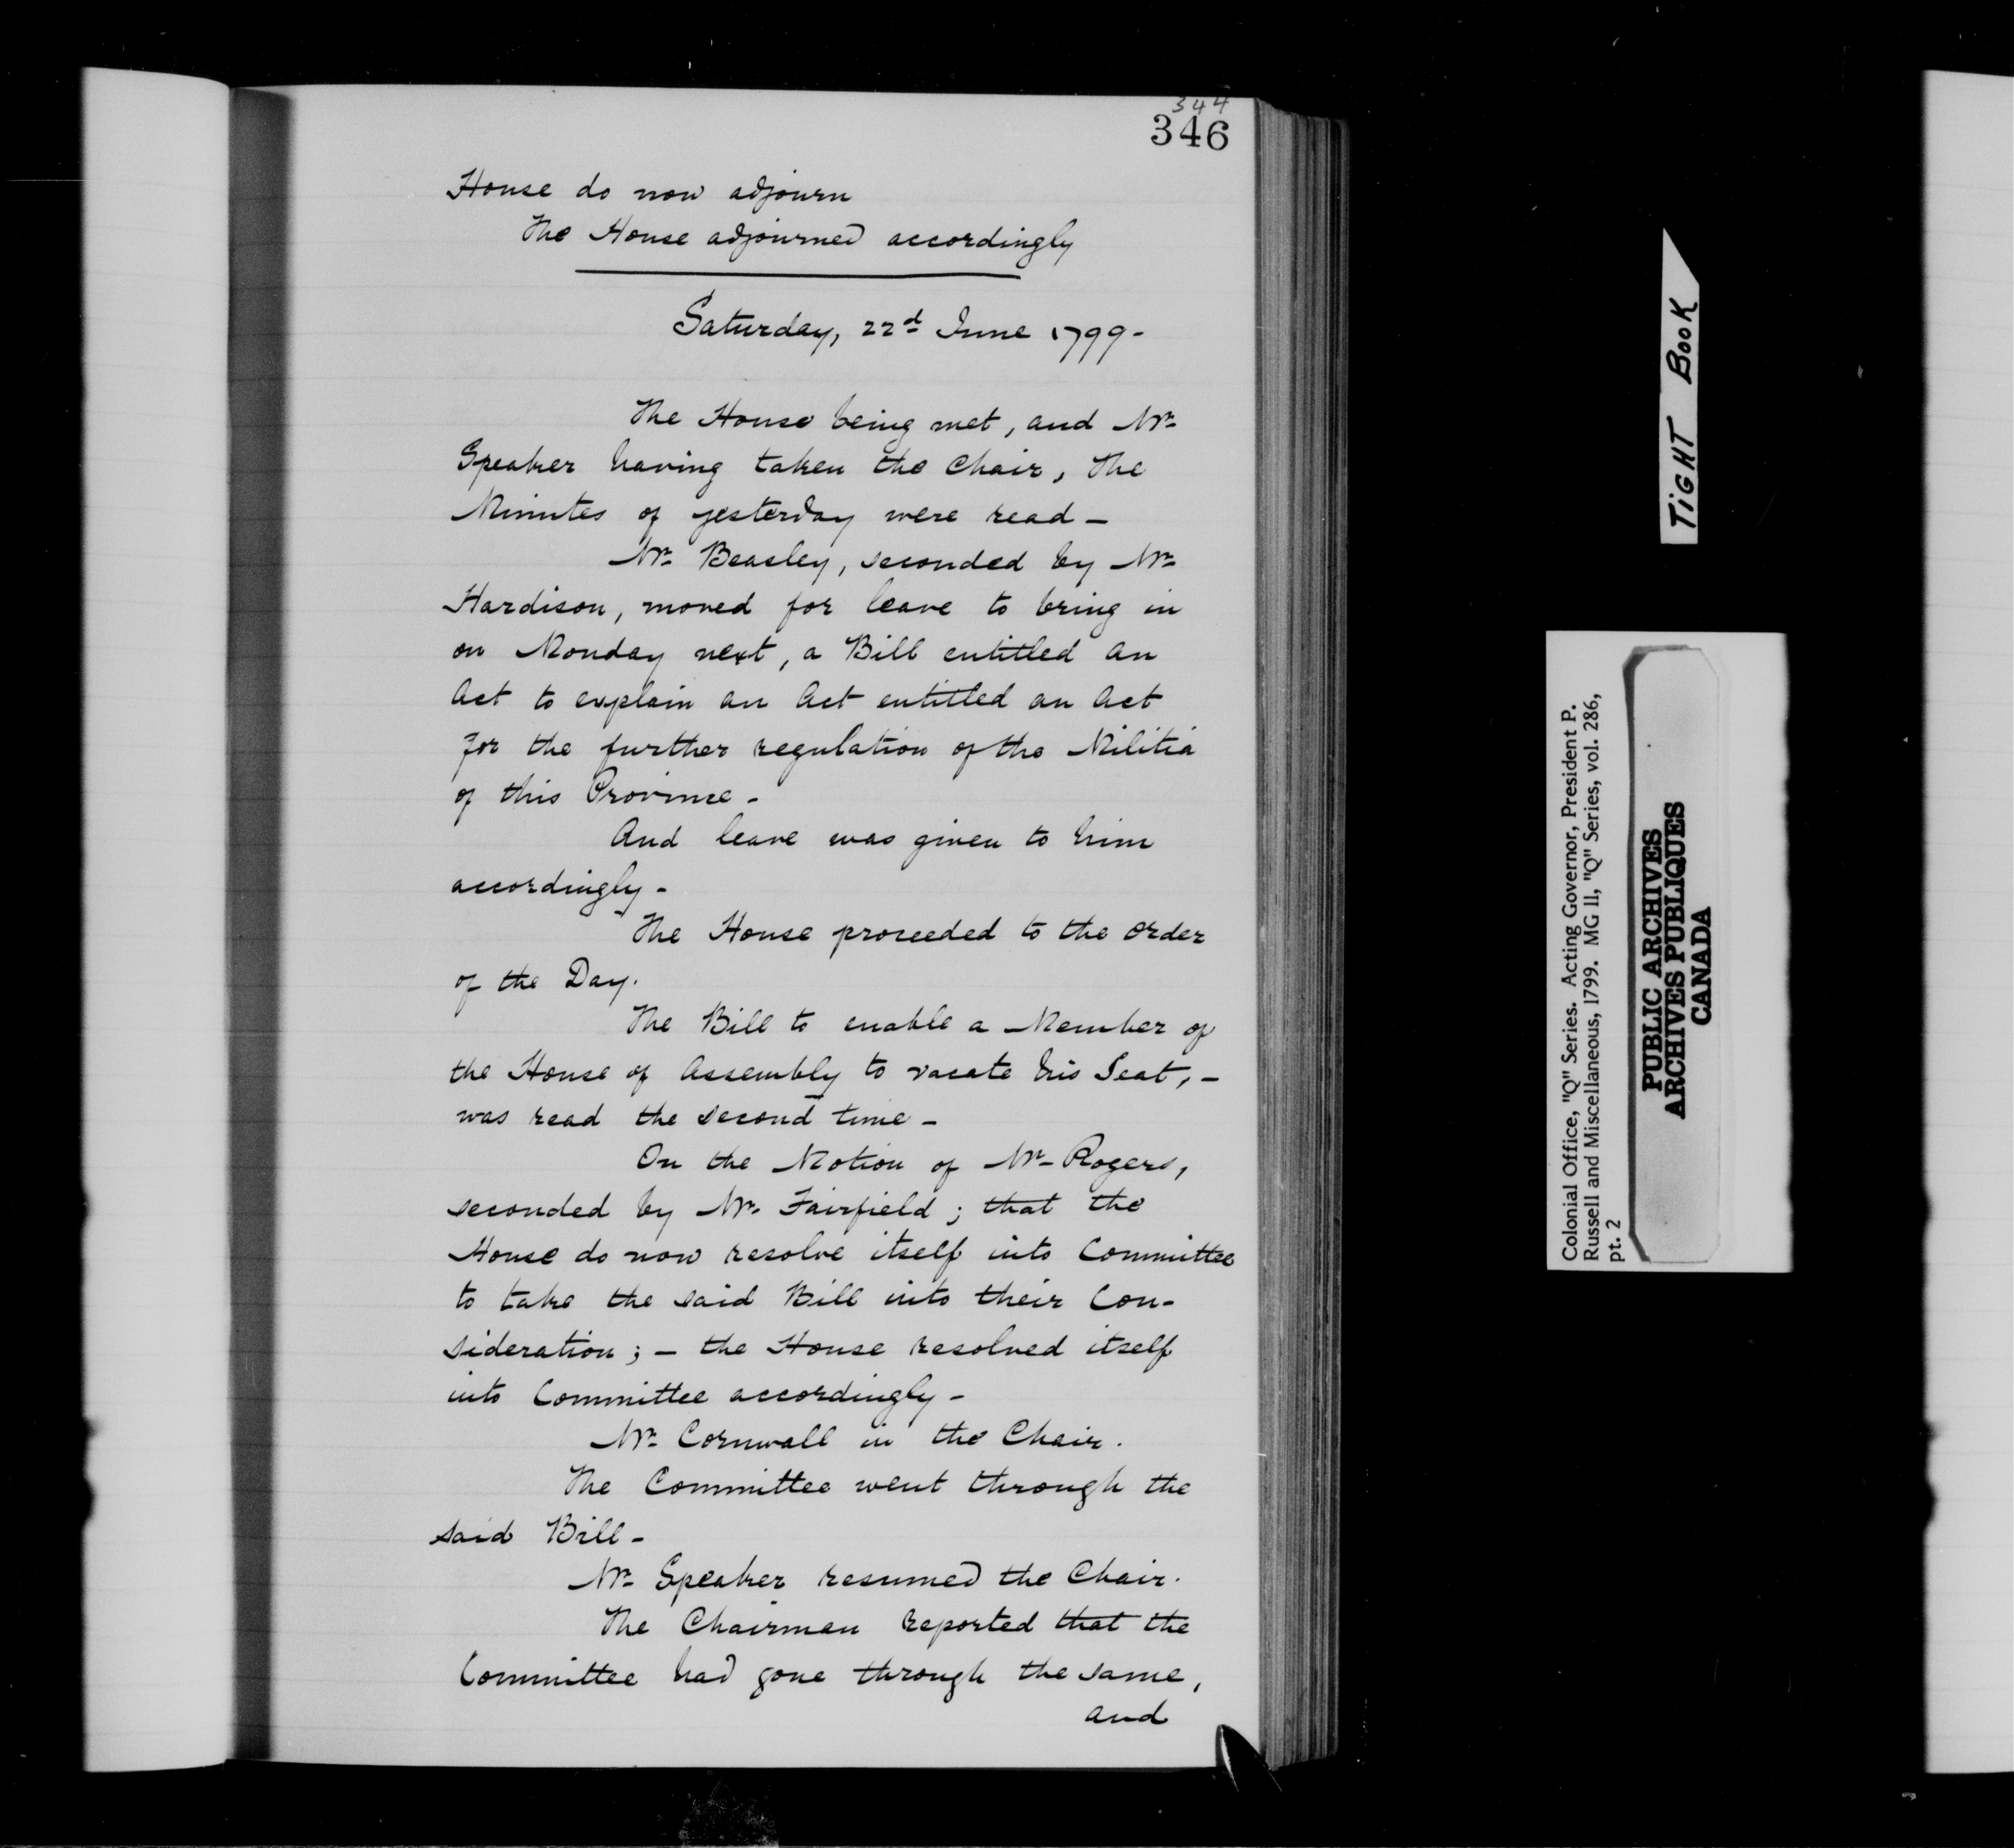 344
346
House do now adjourn
The House adjourned accordingly
Saturday, 22d June 1799-
The House being met, and Mr
Speaker having taken the Chair, The
Minutes of yesterday were read -
Mr Beasley, seconded by Mr
Hardison, moved for leave to bring in
on Monday next, a Bill entitled An
Act to explain an Act entitled an Act
for the further regulation of the Militia
of this Province -
And leave was given to him
accordingly -
The House proceeded to the Order
of the Day.
The Bill to enable a Member of
the House of Assembly to vacate his Seat, -
was read the second time -
On the Motion of Mr Rogers,
seconded by Mr Fairfield; that the
House do now resolve itself into Committee
to take the said Bill into their Con-
sideration; - the House resolved itself
into Committee accordingly -
Mr Cornwall in the Chair.
The Committee went through the
said Bill -
Mr Speaker resumed the Chair.
The Chairman reported that the
Committee had gone through the same,
and
TIGHT BOOK
Colonial Office, "Q" Series. Acting Governor, President P.
Russell and Miscellaneous, 1799. MG 11, "Q" Series, vol. 286,
pt. 2
PUBLIC ARCHIVES
ARCHIVES PUBLIQUES
CANADA